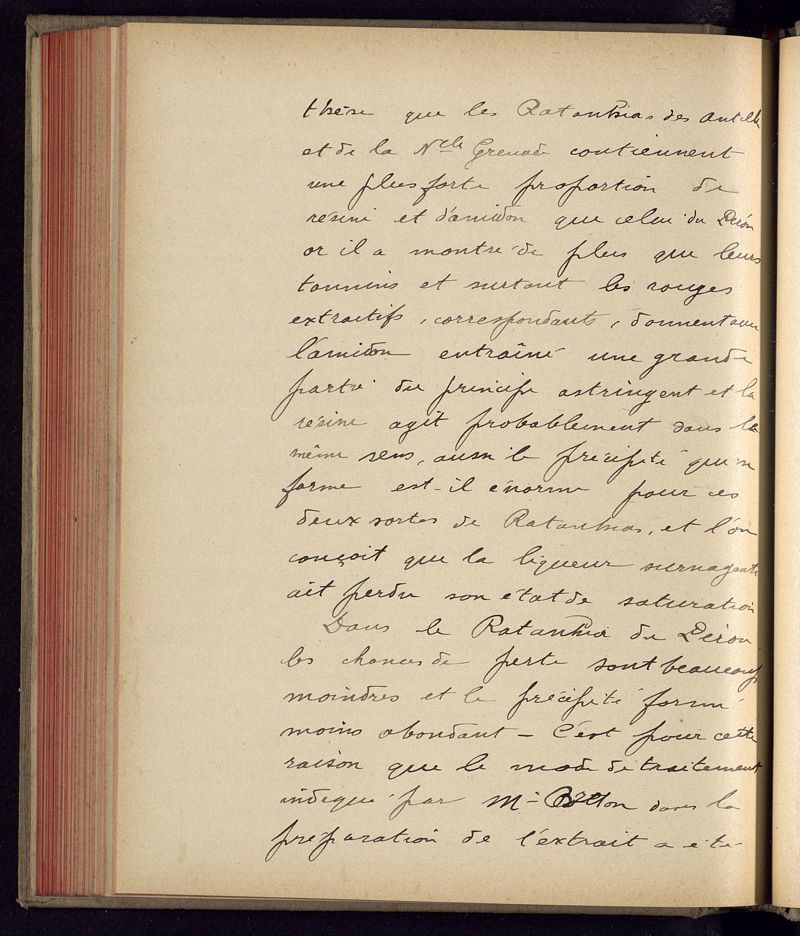 thèse que les Ratanhias des Antilles
et de la Nlle Grenade contiennent
une plus forte proportion de
résine et d'amidon que celui du Pérou
or il a montré de plus que leurs
tannins et surtout les rouges
extractifs, correspondants, donnent avec
l'amidon entraîné une grande
partie du principe astringent et la
résine agit probablement dans le
même sens, aussi le précipité qui se
forme est-il énorme pour ces
deux sortes de Ratanhias, et l'on
conçoit que la liqueur surnageante
ait perdu son état de saturation
Dans le Ratanhia du Pérou
les chances de perte sont beaucoup
moindres et le précipité formé
moins abondant – C'est pour cette
raison que le mode de traitement
indiqué par Mr dans la
préparation de l'extrait a été